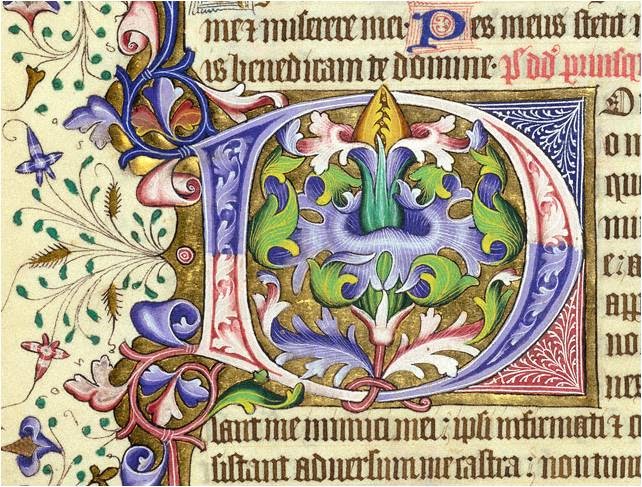 me ⁊ miserere mei· Pes meus stetit i
is benedicam te domine· ps dd priusq
D
O
o n
que
mi
e: a
app
no
nec
lant me inimici mei: ipsi infirmati ⁊ c
sistant adversum me castra: non time